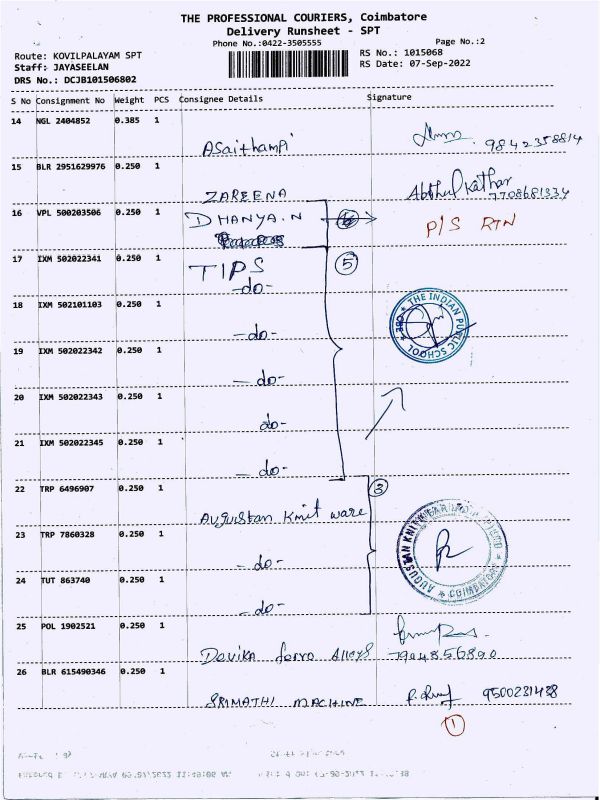 THE PROFESSIONAL COURIERS, Coimbatore
Delivery Runsheet - SPT
Phone No.:0422-3505555 Page No.:2
Route: KOVILPALAYAM SPT RS No.: 1015068
Staff: JAYASEELAN RS Date: 07-Sep-2022
DRS No.: DCJB101506802
S No Consignment No Weight PCS Consignee Details Signature
14 NGL 2404852 0.385 1
Asaithampi 9842358814
15 BLR 2951629976 0.250 1
ZAREENA Abthul Kathar
7708681334
16 VPL 500203506 0.250 1 DHANYA.N P/S RTN
17 IXM 502022341 0.250 1 TIPS 5
-do-
18 IXM 502101103 0.250 1 THE INDIAN PUBLIC SCHOOL * CBE *
-do-
19 IXM 502022342 0.250 1
-do-
20 IXM 502022343 0.250 1
do-
21 IXM 502022345 0.250 1
-do-
22 TRP 6496907 0.250 1 3
Augustan Knit ware
23 TRP 7860328 0.250 1 AUGUSTAN KNITWEAR * COIMBATORE *
-do-
24 TUT 863740 0.250 1
-do-
25 POL 1902521 0.250 1
Devika ferro Alloys 7904856890
26 BLR 615490346 0.250 1
SRIMATHI MACHINE 9500231438
1